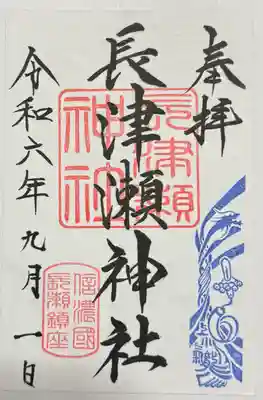 奉拝
長津瀬神社
長津瀬
神社
令和六年九月一日
信濃國
長瀬鎮座